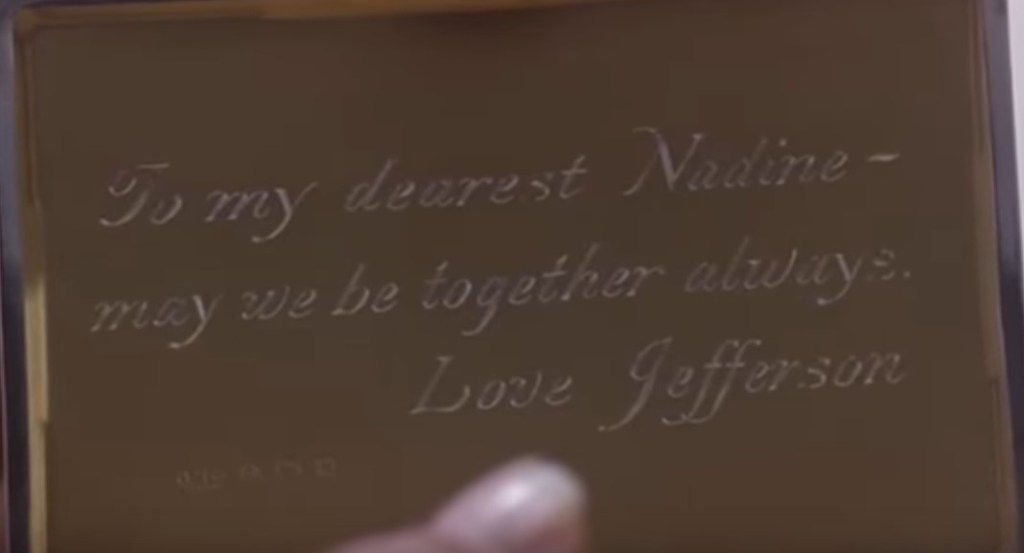 To my dearest Nadine -
may we be together always.
Love Jefferson